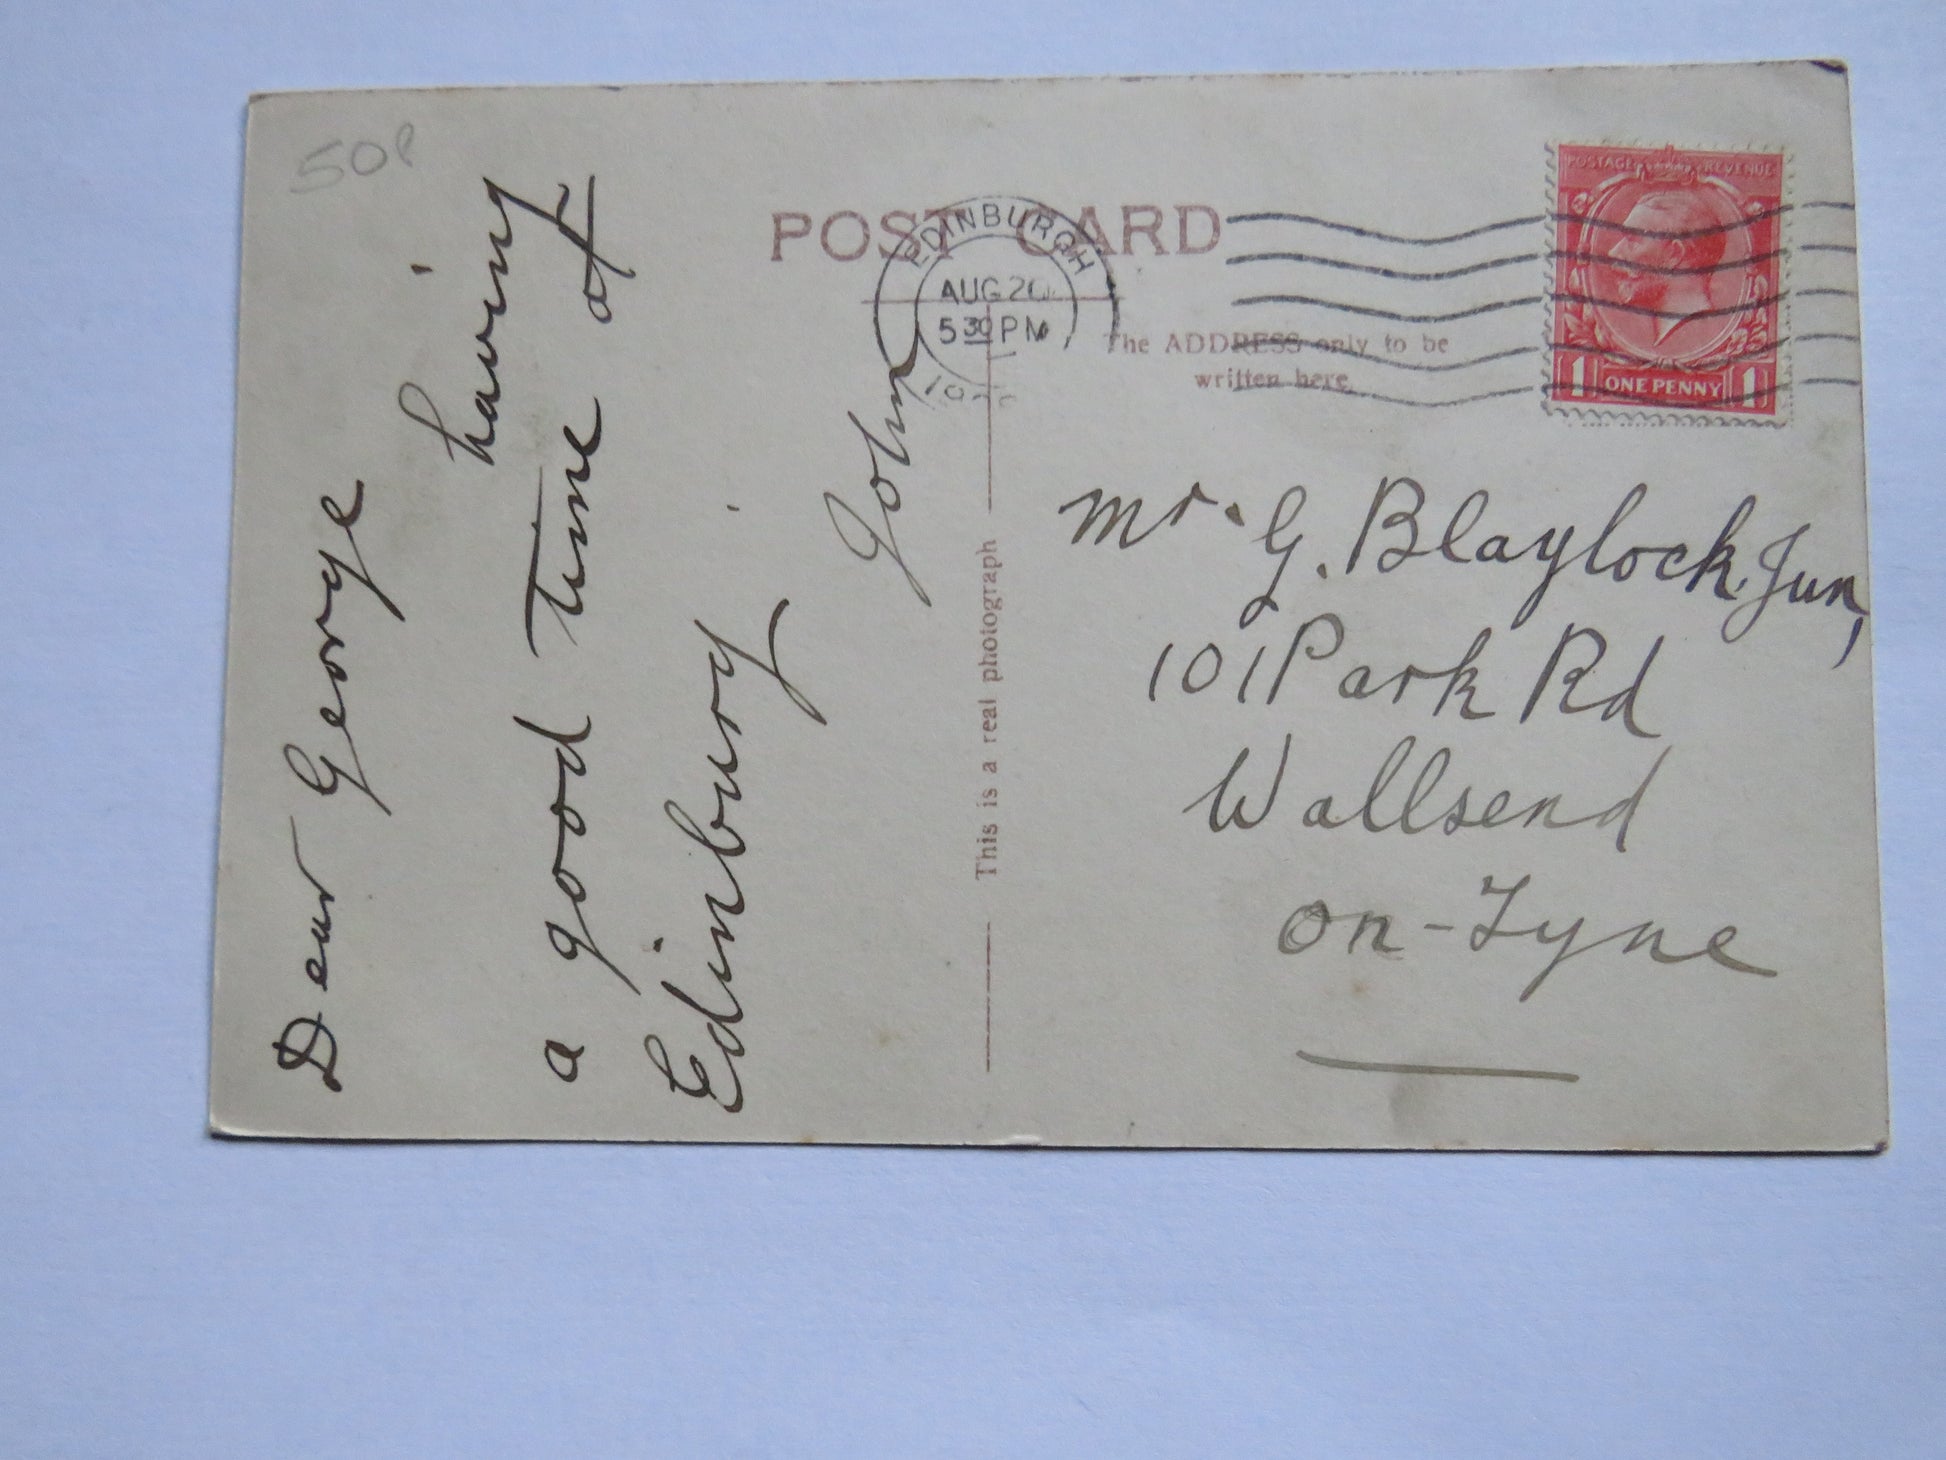 50P
POST CARD
EDINBURGH
AUG 20
5 30 PM
POSTAGE REVENUE
1 ONE PENNY 1
The ADDRESS only to be
written here.
This is a real photograph
Dear George
having
a good time at
Edinburg
John
Mr. G. Blaylock. Jun,
101 Park Rd
Wallsend
on-Tyne